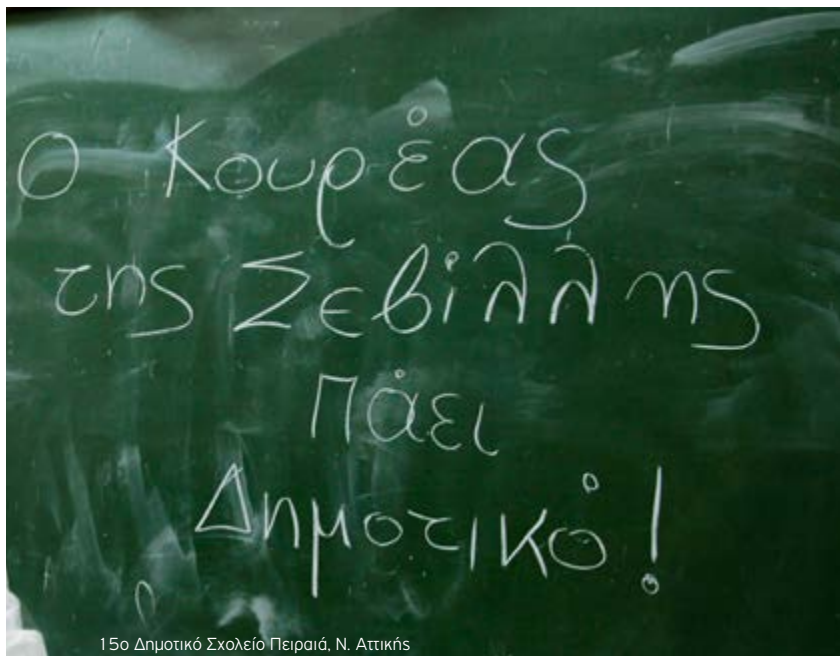 Ο Κουρέας
της Σεβίλλης
πάει
Δημοτικό!
15ο Δημοτικό Σχολείο Πειραιά, Ν. Αττικής